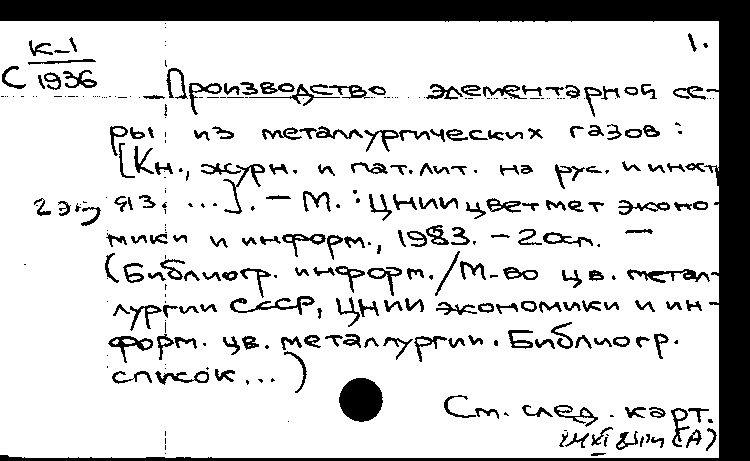 К-1
1.
С 1936
Производство элементарной се-
ры из металлургических газов :
[Кн., журн. и пат. лит. на рус. и иностр
2 экз яз. ...]. — М. : ЦНИИцветмет эконо-
мики и информ., 1983. — 20 сл. —
(Библиогр. информ. / М-во цв. метал-
лургии СССР, ЦНИИ экономики и ин-
форм. цв. металлургии. Библиогр.
список...)
См. след. карт.
(А)